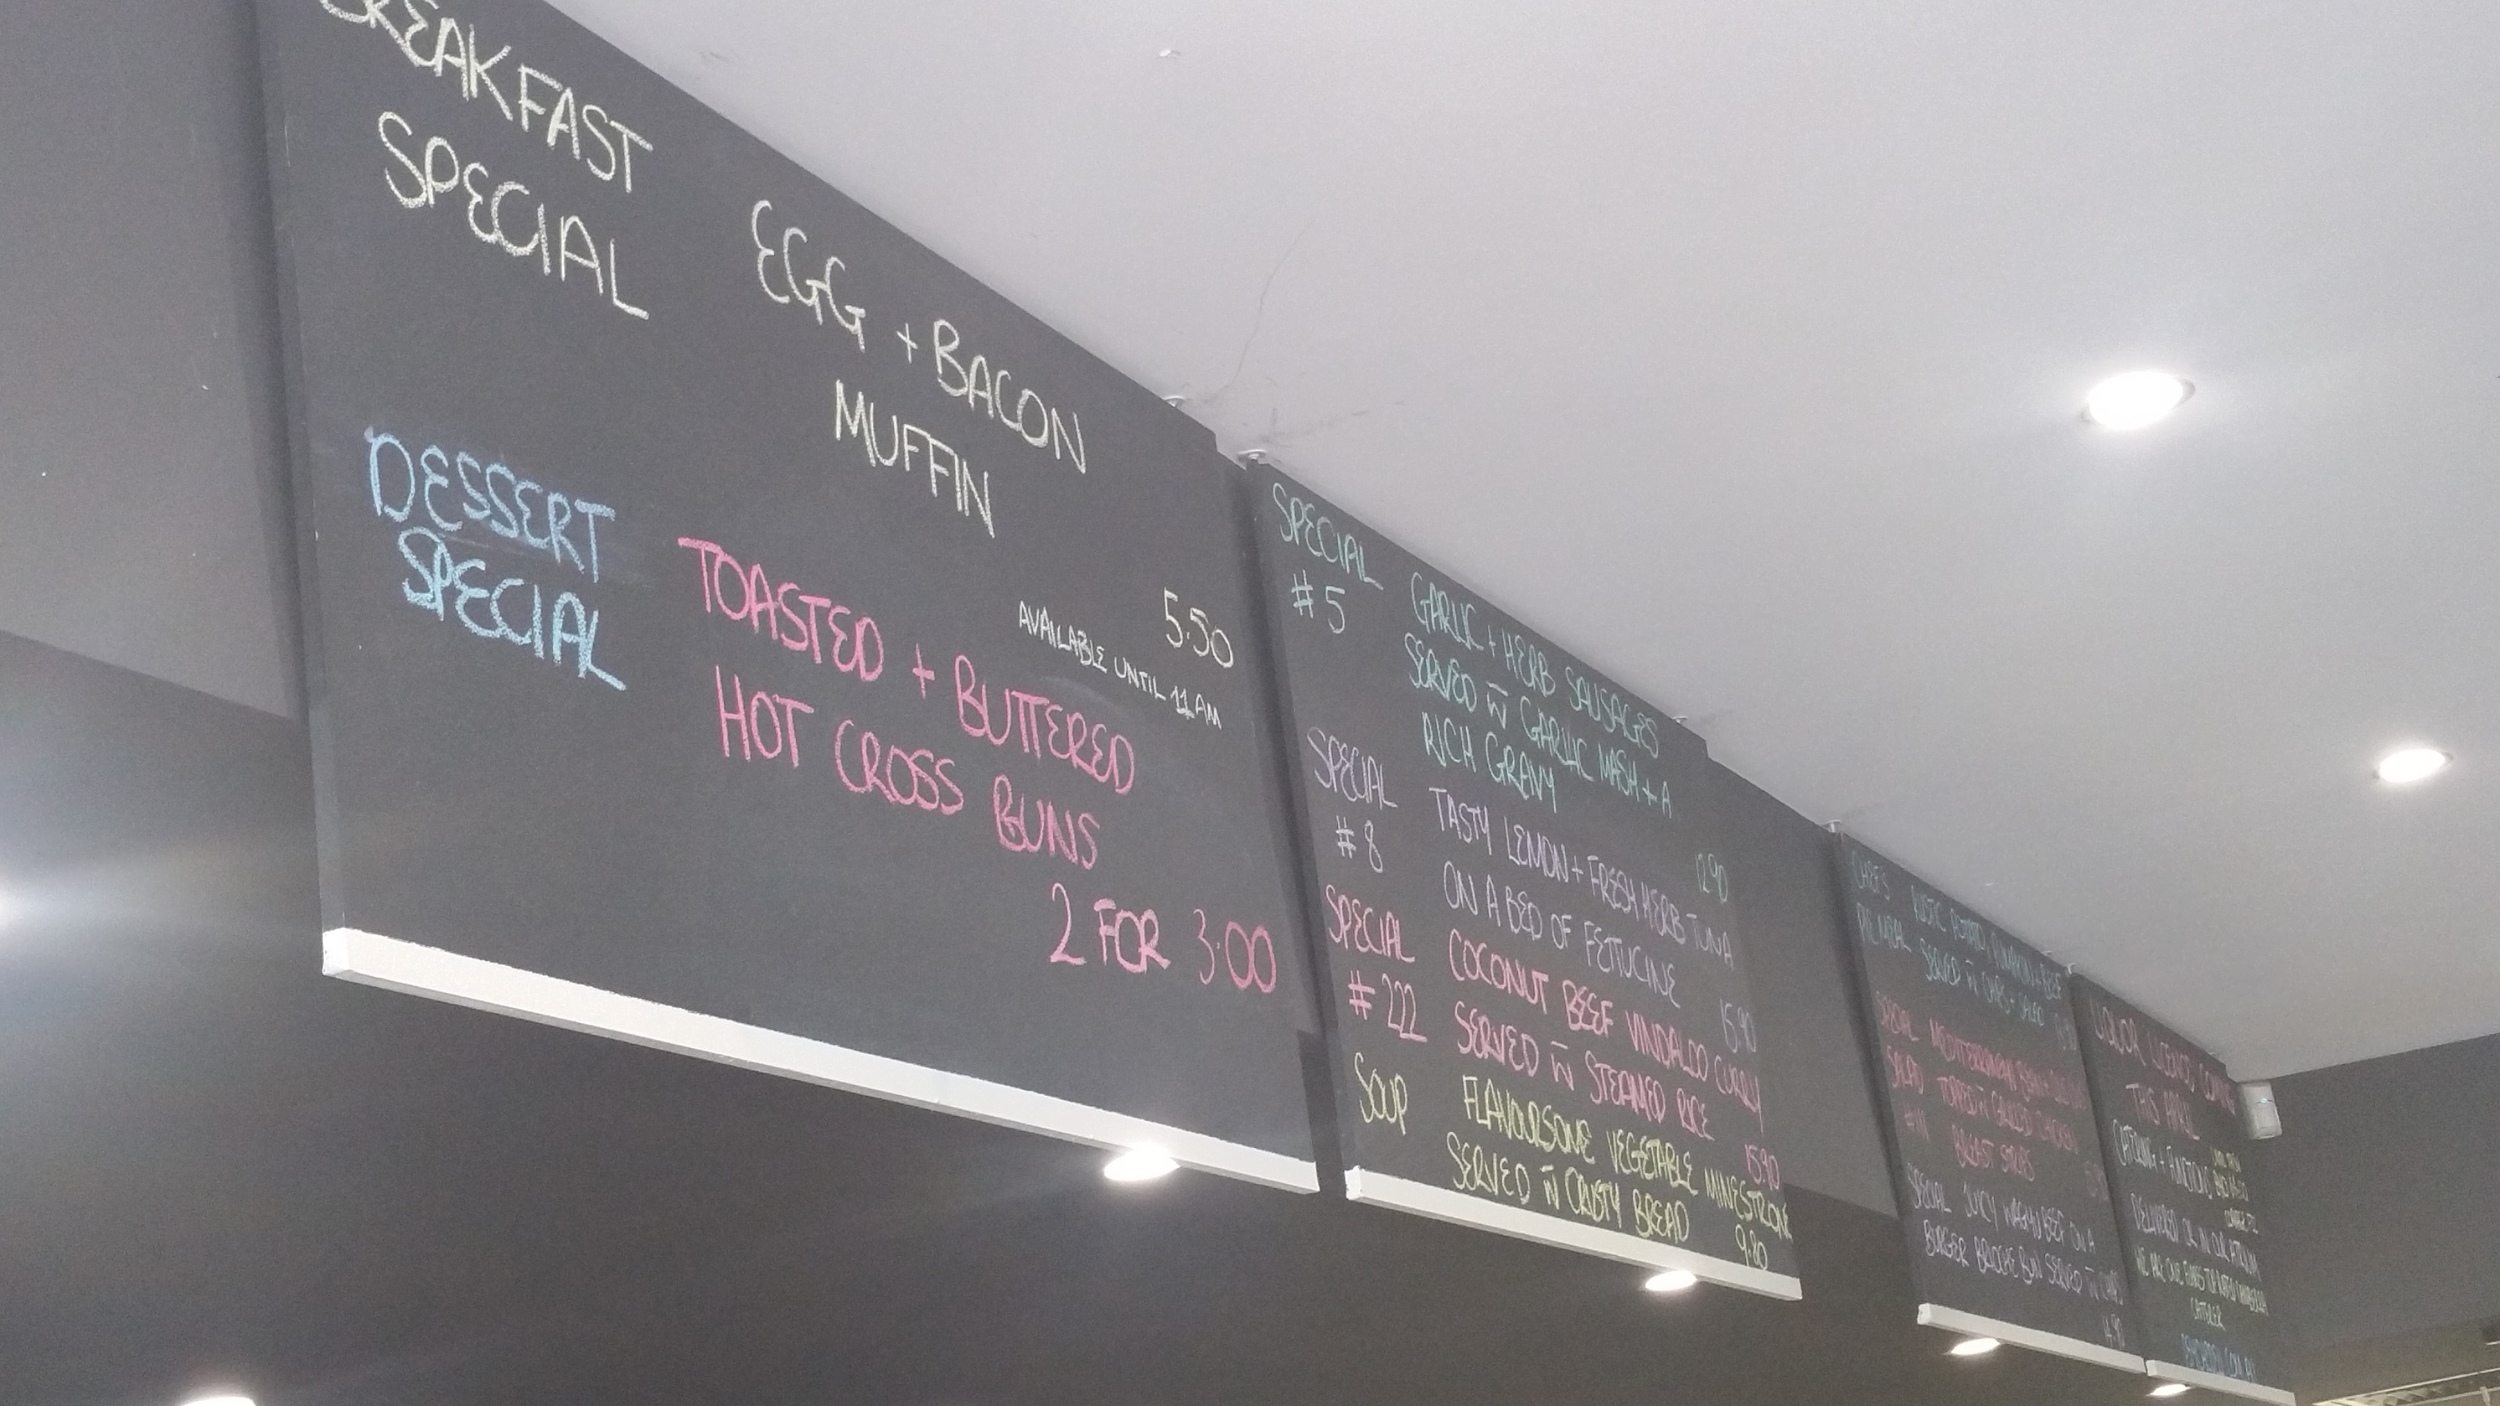 BREAKFAST
SPECIAL
EGG + BACON
MUFFIN
5.50
AVAILABLE UNTIL 11AM
DESSERT
SPECIAL
TOASTED + BUTTERED
HOT CROSS BUNS
2 FOR 3.00
SPECIAL
# 5
GARLIC + HERB SAUSAGES
SERVED W GARLIC MASH + A
RICH GRAVY
12.90
SPECIAL
# 8
TASTY LEMON + FRESH HERB TUNA
ON A BED OF FETTUCINE
15.90
SPECIAL
# 222
COCONUT BEEF VINDALOO CURRY
SERVED W STEAMED RICE
15.90
SOUP
FLAVOURSOME VEGETABLE MINESTRONE
SERVED W CRUSTY BREAD
9.80
CHEF'S
PIE MEAL
RUSTIC POTATO PUMPKIN + BEEF
SERVED W CHIPS + SALAD
SPECIAL
SALAD
#111
MEDITERRANEAN
TOPPED W GRILLED CHICKEN
BREAST STRIPS
SPECIAL
BURGER
JUICY WAGYU BEEF ON A
BRIOCHE BUN SERVED W CHIPS
14.90
LIQUOR LICENCE COMING
THIS APRIL
CATERING + FUNCTIONS
DELIVERED OR IN OUR ATRIUM
WE ARE ONE
CATERER